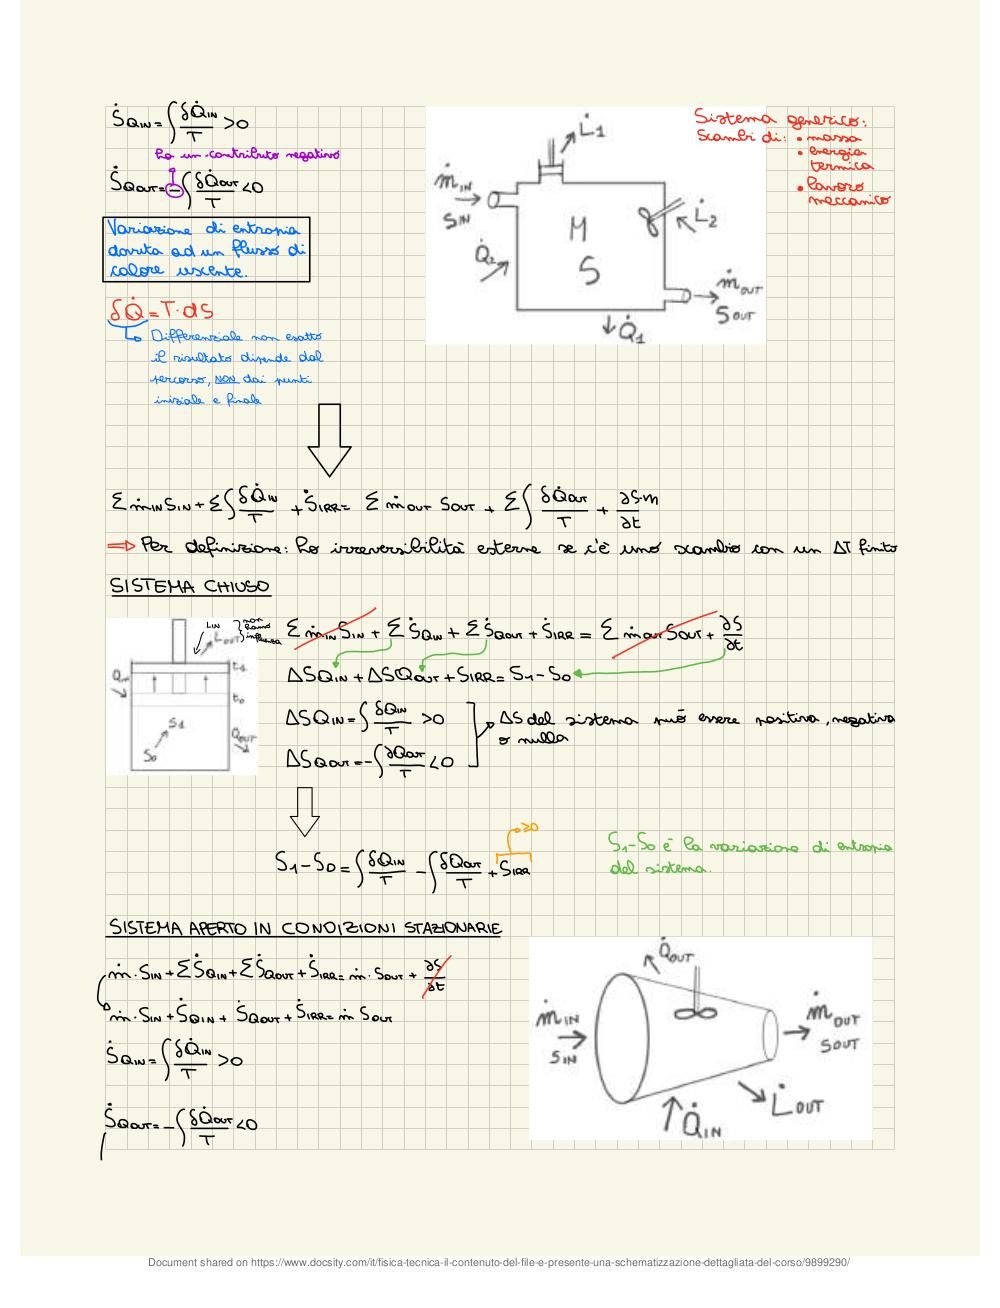 Ṡ_QIN = ∫ δQ̇_IN / T > 0
ho un contributo negativo
Ṡ_QOUT = − ∫ δQ̇_OUT / T < 0
Variazione di entropia
dovuta ad un flusso di
calore uscente.
δQ̇ = T·dS
Differenziale non esatto
il risultato dipende dal
percorso, NON dai punti
iniziale e finale
L̇1
ṁ_IN
S_IN
M
S
L̇2
Q̇2
ṁ_OUT
S_OUT
Q̇1
Sistema generico:
Scambi di: • massa
• energia
termica
• lavoro
meccanico
Σ ṁ_IN S_IN + Σ ∫ δQ̇_IN / T + Ṡ_IRR = Σ ṁ_OUT S_OUT + Σ ∫ δQ̇_OUT / T + ∂S·m / ∂t
⇒ Per definizione: ho irreversibilità esterne se c'è uno scambio con un ΔT finito
SISTEMA CHIUSO
L_IN
L_OUT
non
hanno
influenza
Q_IN
t1
t0
S1
S0
Q_OUT
Σ ṁ_IN S_IN + Σ Ṡ_QIN + Σ Ṡ_QOUT + Ṡ_IRR = Σ ṁ_OUT S_OUT + ∂S / ∂t
ΔS_QIN + ΔS_QOUT + S_IRR = S1 − S0
ΔS_QIN = ∫ δQ_IN / T > 0
ΔS_QOUT = − ∫ ∂Q_OUT / T < 0
ΔS del sistema può essere positiva, negativa
o nulla
S1 − S0 = ∫ δQ_IN / T − ∫ δQ_OUT / T + S_IRR
≥0
S1−S0 è la variazione di entropia
del sistema.
SISTEMA APERTO IN CONDIZIONI STAZIONARIE
ṁ·S_IN + Σ Ṡ_QIN + Σ Ṡ_QOUT + Ṡ_IRR = ṁ·S_OUT + ∂S / ∂t
ṁ·S_IN + Ṡ_QIN + Ṡ_QOUT + Ṡ_IRR = ṁ S_OUT
Ṡ_QIN = ∫ δQ̇_IN / T > 0
Ṡ_QOUT = − ∫ δQ̇_OUT / T < 0
Q̇_OUT
ṁ_IN
S_IN
ṁ_OUT
S_OUT
L̇_OUT
Q̇_IN
Document shared on https://www.docsity.com/it/fisica-tecnica-il-contenuto-del-file-e-presente-una-schematizzazione-dettagliata-del-corso/9899290/